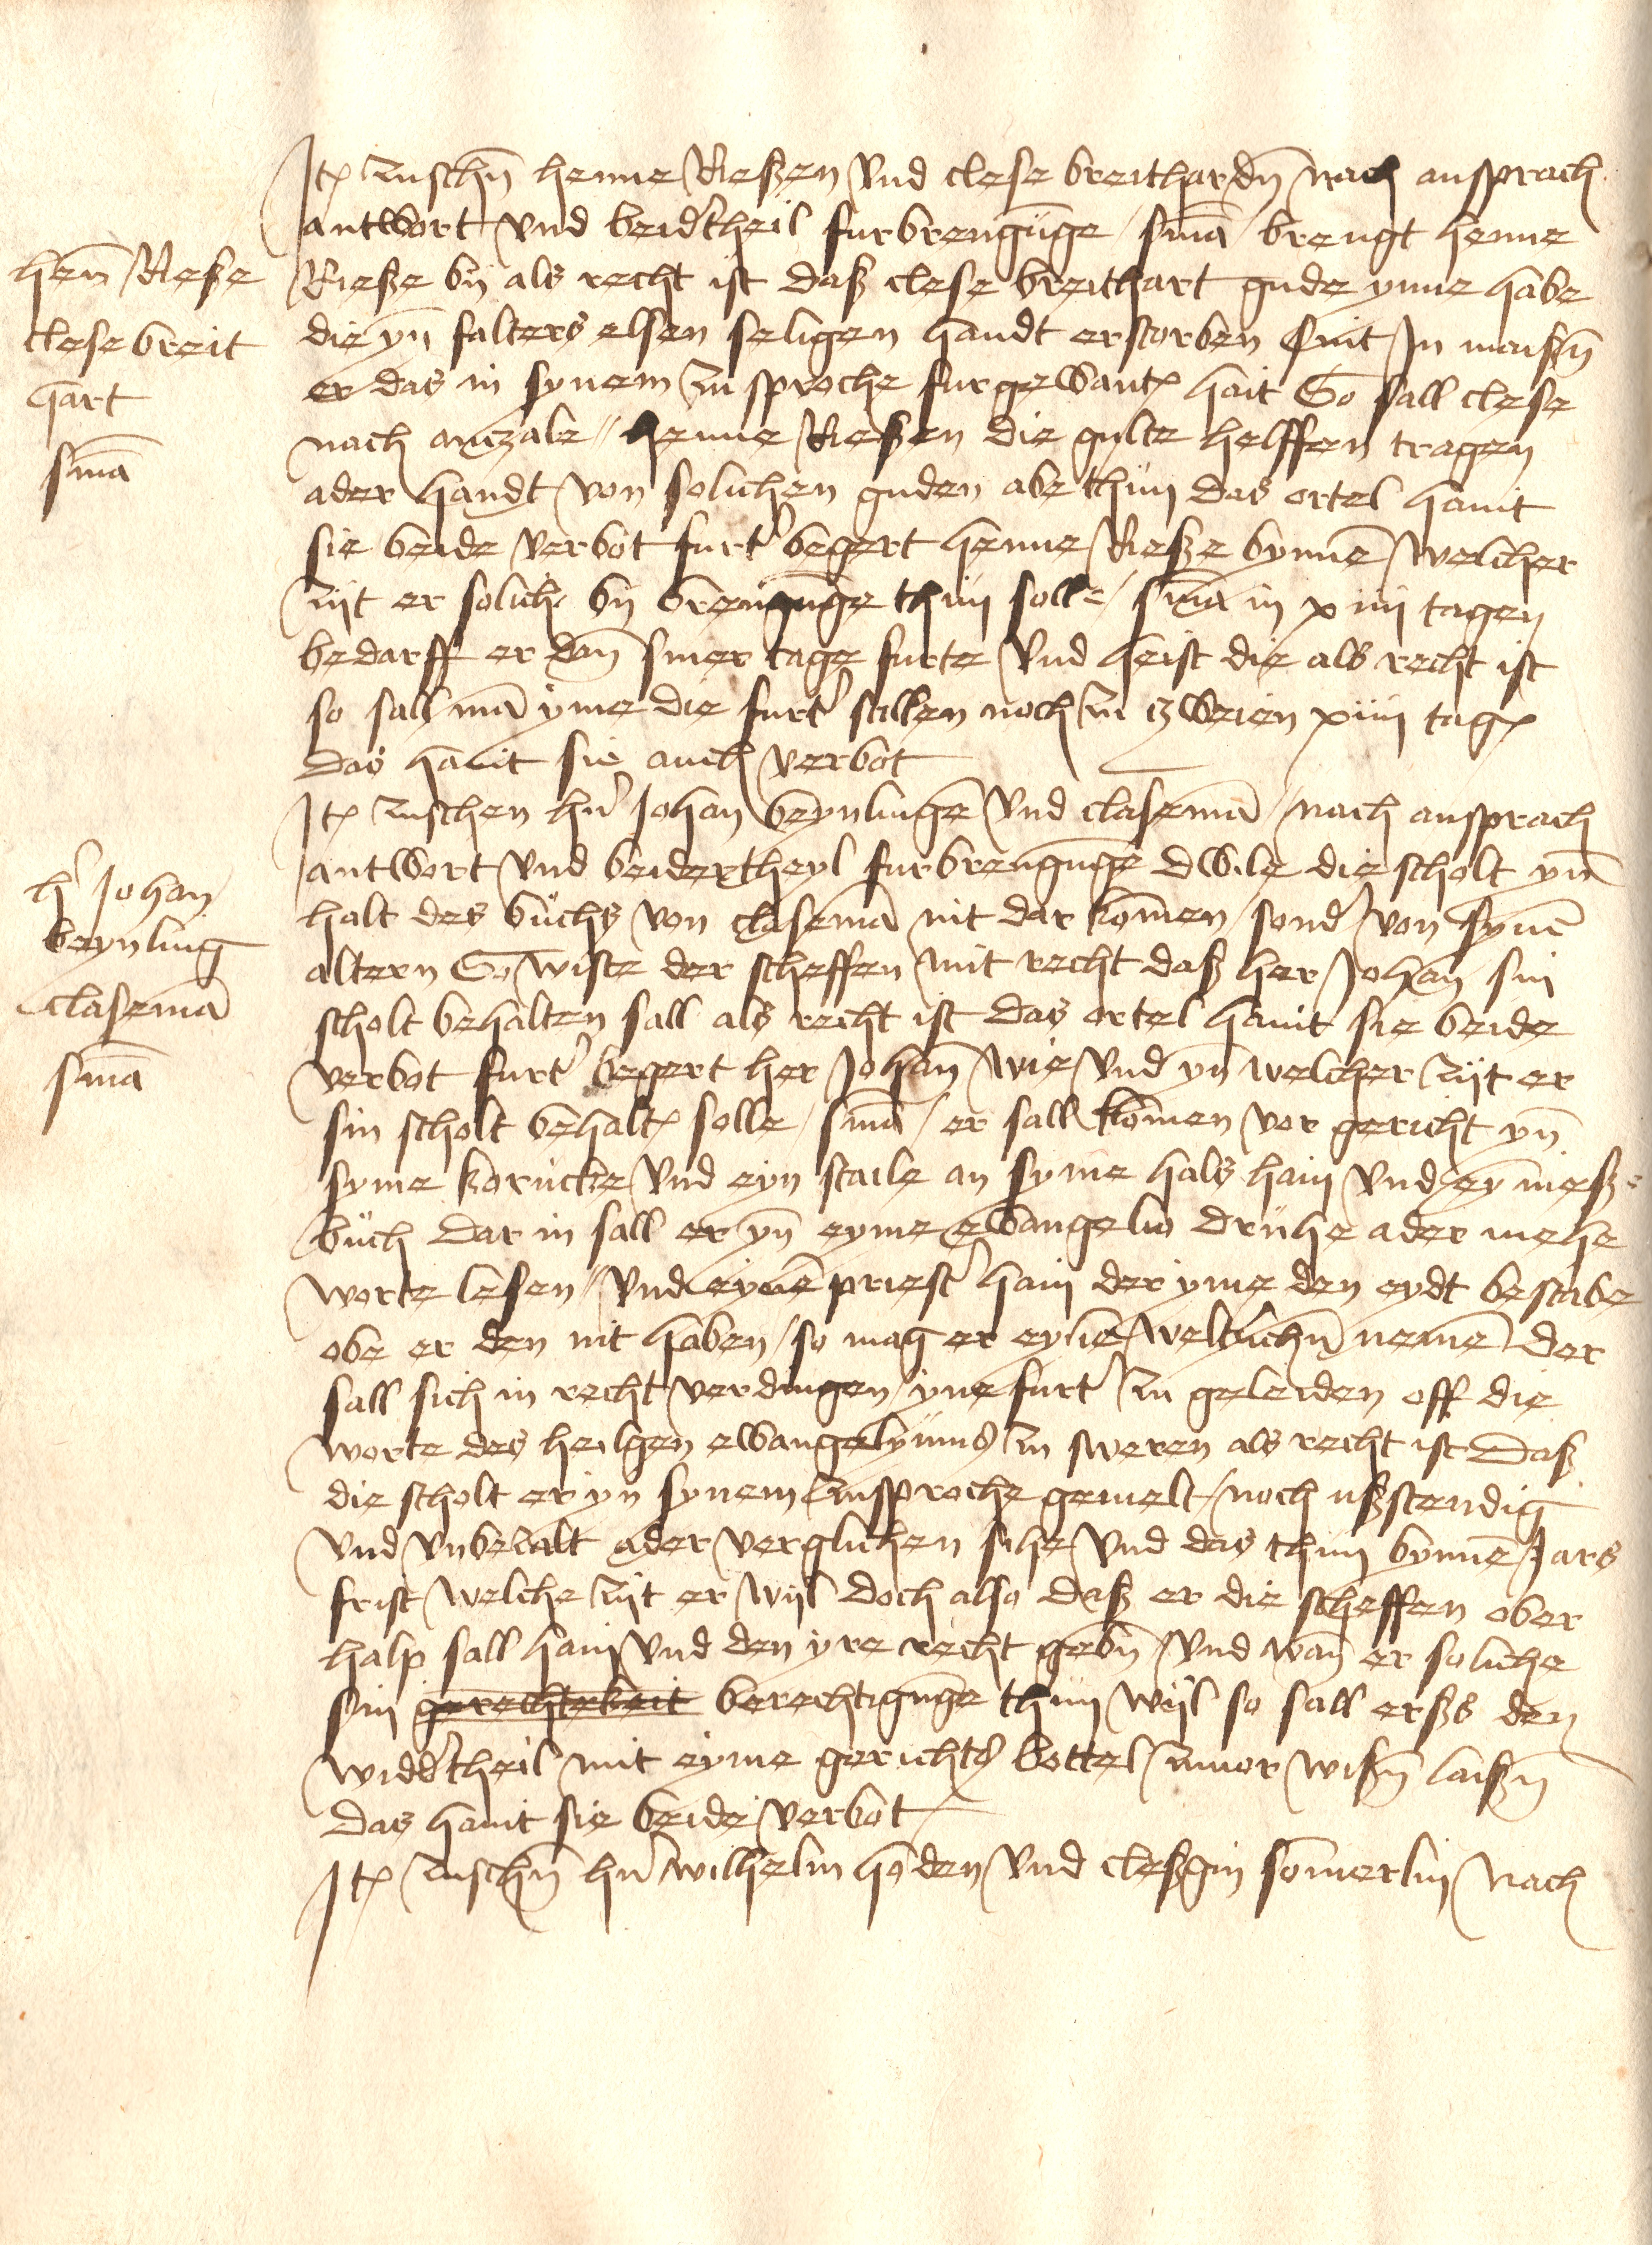 Jt zuschn̄ henne Rießen vnd clese breithardn̄ nach ansprach
antwort vnd beid'theil furbrengūge sm̄a brengt henne
Rieße by als recht ist daß clese breithart gude ynne habe
die yn̄ falters elsen seligen handt erstorben sint in maißn̄
er das in synem zu sproche furgewant hait So sall clese
nach anczale henne Rießen die gulte helffen tragen
ader handt von solichen guden abe thun das ortel hant
sie beide verbot furt' begert henne Rieße bynnē welcher
zijt er solich by brengūge thun solle sm̄a in xiiij tagen
bedarff er dan̄ siner tage furte vnd heist die als recht ist
so sall mā yme die furt' stellen noch zu zweien xiiij tag
das hant sie auch verbot
Jt zuschen hn̄ Johan beynlinge vnd clasemā nach ansprach
antwort vnd beidertheyl furbrengūge dwile die scholt yn̄
halt des buchs von clasemā nit dar kōmen sond' von synē
altern So wiste der scheffen mit recht daß her Johan sin
scholt behalten sall als recht ist das ortel hant sie beide
verbot furt' begert her Johan̄ wie vnd yn̄ welcher zijt er
sin scholt behalt solle sm̄a er sall kōmen vor gericht yn̄
syme korucke vnd eyn staile an syme hals hain vnd ey meß=
buch dar in sall er yn̄ eyme ewangelio druhe ader mehe
worte lesen vnd eynē priest' hain der yme den eydt bestabe
obe er den nit haben so mag er eynē weltlichn̄ nemē der
sall sich in recht verdingen yne furt' zu geleiden off die
worte des heilgen ewangelyums zu sweren als recht ist daß
die scholt er yn synem zusproche gemelt noch ußstendig
vnd vnbezalt ader verglichen sihe vnd das thun bynnē Jars
frist welche zijt er wijl doch also daß er die scheffen ober
halp sall hain vnd den yre recht gebn̄ vnd wan̄ er soliche
sin gerechtekeit berechtigūge thun wijl so sall erßs den
widd'theil mit eyme gerichts bottel zuuor wißn̄ laißn̄
das hant sie beide verbot
Jt zuschn̄ hn̄ wilhelm hōden vnd cleßgin sōmerlin nach
hen̄ Rieße
clese breit
hart
sm̄a
h' Johan
beynling
clasemā
sm̄a